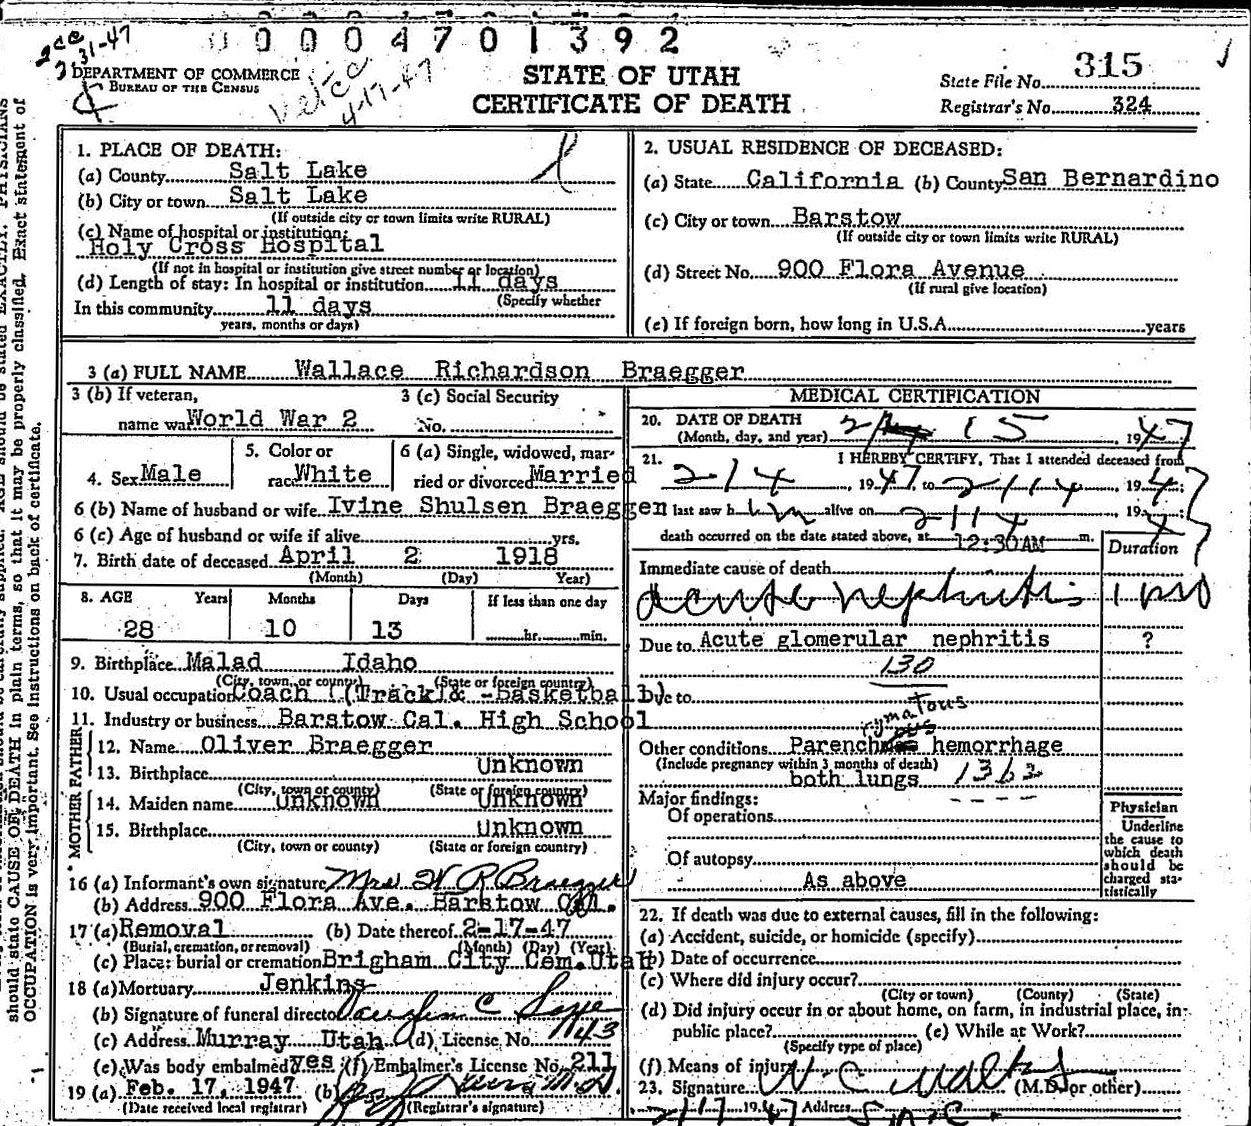 00004701392
31-47
4-17-47
DEPARTMENT OF COMMERCE
BUREAU OF THE CENSUS
STATE OF UTAH
CERTIFICATE OF DEATH
State File No. 315
Registrar's No. 324
1. PLACE OF DEATH:
(a) County Salt Lake
(b) City or town Salt Lake
(If outside city or town limits write RURAL)
(c) Name of hospital or institution:
Holy Cross Hospital
(If not in hospital or institution give street number or location)
(d) Length of stay: In hospital or institution 11 days
(Specify whether
In this community 11 days
years, months or days)
2. USUAL RESIDENCE OF DECEASED:
(a) State California (b) County San Bernardino
(c) City or town Barstow
(If outside city or town limits write RURAL)
(d) Street No. 900 Flora Avenue
(If rural give location)
(e) If foreign born, how long in U.S.A. years
3 (a) FULL NAME Wallace Richardson Braegger
3 (b) If veteran, 3 (c) Social Security
name war World War 2 No.
4. Sex Male
5. Color or
race White
6 (a) Single, widowed, mar-
ried or divorced Married
6 (b) Name of husband or wife Ivine Shulsen Braeggen
6 (c) Age of husband or wife if alive yrs.
7. Birth date of deceased April 2 1918
(Month) (Day) Year)
8. AGE Years Months Days If less than one day
28 10 13 hr. min.
9. Birthplace Malad Idaho
(City, town, or county) (State or foreign country)
10. Usual occupation Coach (Track) & -basketball)
11. Industry or business Barstow Cal. High School
FATHER
12. Name Oliver Braegger
13. Birthplace Unknown
(City, town or county) (State or foreign country)
MOTHER
14. Maiden name Unknown Unknown
15. Birthplace Unknown
(City, town or county) (State or foreign country)
16 (a) Informant's own signature Mrs W R Braegger
(b) Address 900 Flora Ave. Barstow Cal.
17 (a) Removal (b) Date thereof 2-17-47
(Burial, cremation, or removal) (Month) (Day) (Year)
(c) Place: burial or cremation Brigham City Cem. Utah
18 (a) Mortuary Jenkins
(b) Signature of funeral director
(c) Address Murray Utah (d) License No. 1143
(e) Was body embalmed yes (f) Embalmer's License No. 211
19 (a) Feb. 17, 1947 (b)
(Date received local registrar) (Registrar's signature)
MEDICAL CERTIFICATION
20. DATE OF DEATH
(Month, day, and year) 2/ 15, 1947
21. I HEREBY CERTIFY, That I attended deceased from
2/4, 1947, to 2/14, 1947;
last saw him alive on 2/14, 1947;
death occurred on the date stated above, at 12:30 AM m.
Duration
Immediate cause of death
acute nephritis 1 mo
Due to Acute glomerular nephritis ?
130
Due to
rymatous
Other conditions Parench hemorrhage
(Include pregnancy within 3 months of death)
both lungs 1362
Major findings:
Of operations
Of autopsy
As above
Physician
Underline
the cause to
which death
should be
charged sta-
tistically
22. If death was due to external causes, fill in the following:
(a) Accident, suicide, or homicide (specify)
(b) Date of occurrence
(c) Where did injury occur?
(City or town) (County) (State)
(d) Did injury occur in or about home, on farm, in industrial place, in
public place? (e) While at Work?
(Specify type of place)
(f) Means of injury
23. Signature (M.D. or other)
2/17 1947 Address S.L.C.
should state CAUSE OF DEATH in plain terms, so that it may be properly classified. Exact statement of
OCCUPATION is very important. See instructions on back of certificate.